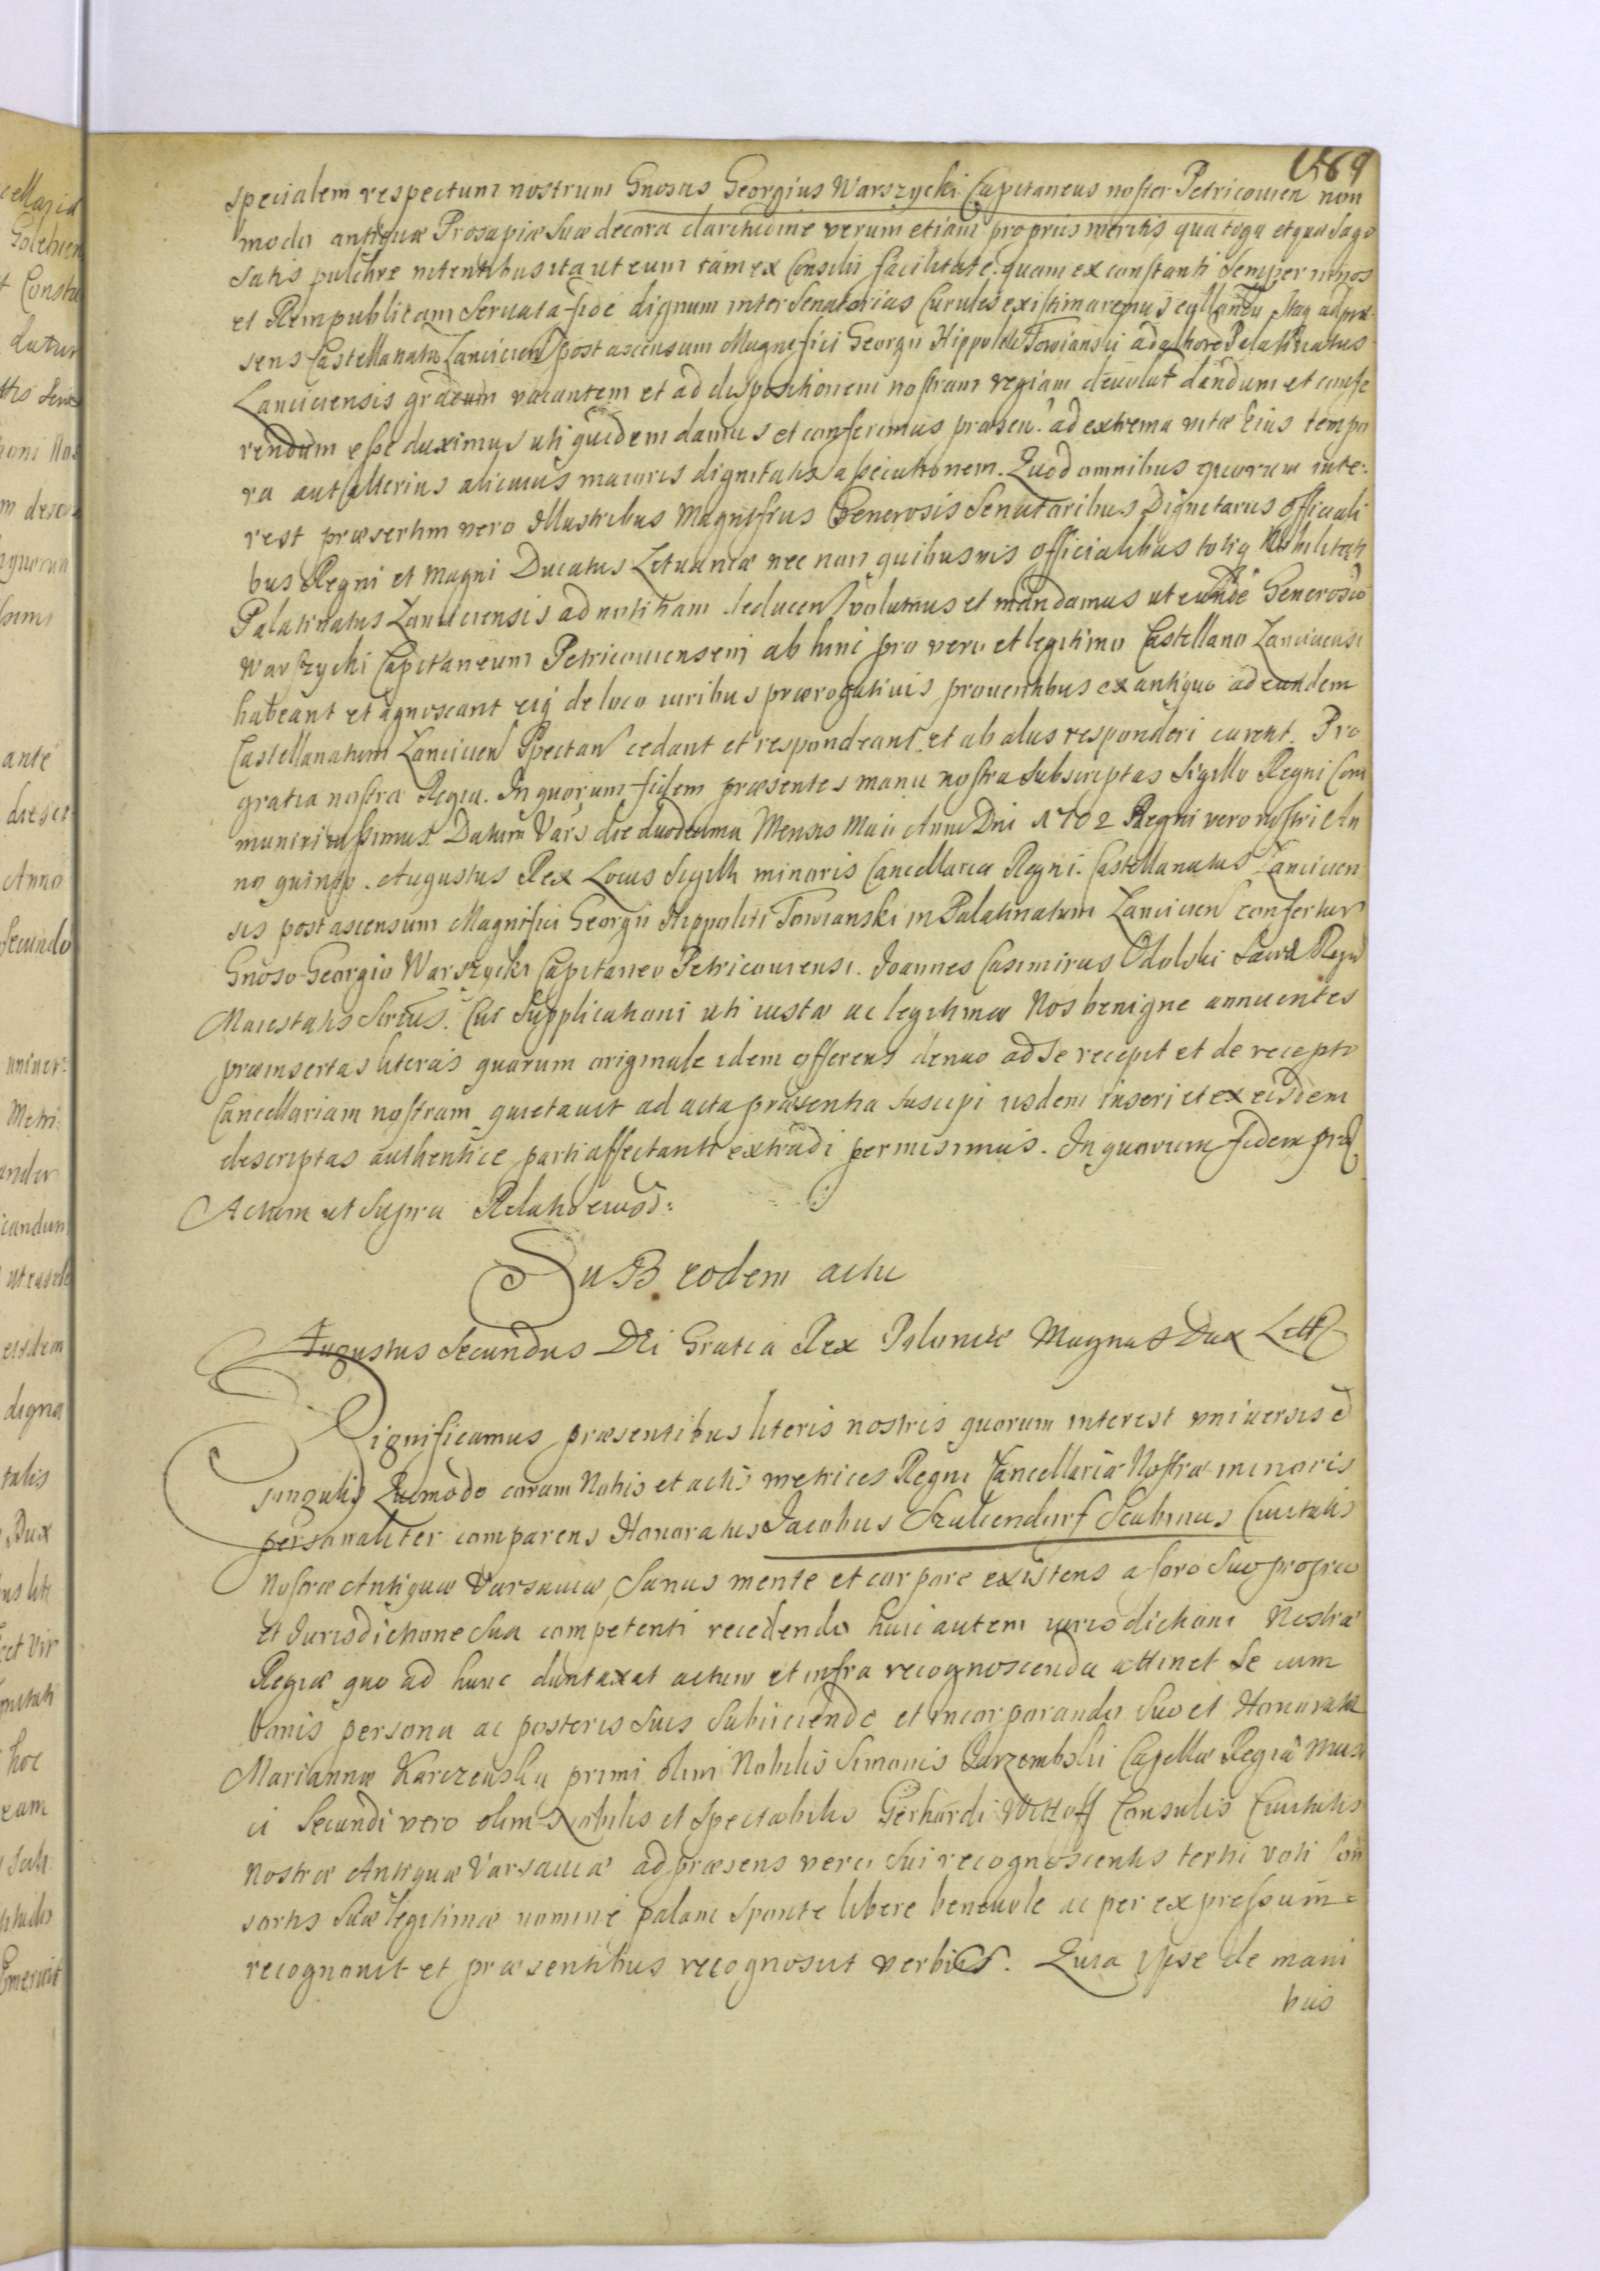 569
specialem respectum nostrum Gnosus Georgius Warszycki Capitaneus noster Petricouien non
modo antiquæ Prosapiæ Suæ decora claritudine verum etiam proprijs meritis qua toga et qua Sago
Satis pulchre nitentibus ita ut eum tam ex Consilij facilitate quam ex constanti Semper in nos
et Rempublicam Seruata fide dignum inter Senatorias Curules existimaremus collocandu Itaq ad præ-
sens Castellanatu Lancicien post ascensum Magnifici Georgii Hippoliti Towianski ad altiore Palatinatus
Lanciciensis gradum vacantem et ad dispositionem nostram regiam deuolut dandum et confe
rendum esse duximus uti quidem damus et conferimus præsen. ad extrema vitæ Eius tempo
ra aut alterius alicuius maioris dignitatis assecutionem. Quod omnibus quorum inte-
rest præsertim vero Illustribus Magnificis Generosis Senatoribus Dignitariis Officiali
bus Regni et Magni Ducatus Lituaniæ nec non quibusuis Officialibus totiq Nobilitati
Palatinatus Lanciciensis ad notitiam deducen volumus et mandamus ut eunde Generosu
Warszycki Capitaneum Petricouiensem ab hinc pro vero et legitimo Castellano Lanciciensi
habeant et agnoscant eiq de loco iuribus prærogatiuis prouentibus ex antiquo ad eundem
Castellanatum Lancicien Spectan cedant et respondeant et ab alijs responderi curent. Pro
gratia nostra Regia. In quorum fidem præsentes manu nostra Subscriptas Sigillo Regni Com
muniri iussimus. Datum Vars die duodecima Mensis Maii Anno Dni 1702 Regni vero nostri An
no quinto. Augustus Rex Locus Sigilli minoris Cancellariæ Regni. Castellanatus Lancicien
sis post ascensum Magnifici Georgii Hippoliti Towianski in Palatinatum Lancicien confertur
Gnoso Georgio Warszycki Capitaneo Petricouiensi. Joannes Casimirus Odolski Sacræ Regiæ
Maiestatis Srius. Cui Supplicationi uti iustæ ac legitimæ Nos benigne annuentes
præinsertas literas quarum originale idem offerens denuo ad Se recepit et de recepto
Cancellariam nostram quietauit ad acta præsentia suscipi iisdem inseri et ex eisdem
descriptas authentice parti affectanti extradi permisimus. In quorum fidem præ
Actum ut Supra Relatio eiusd:
SuB eodem actu
Augustus Secundus DEi Gratia Rex Poloniæ Magnus Dux Litt
Significamus præsentibus literis nostris quorum interest vniuersis et
Singulis Quomodo coram Nobis et actis metrices Regni Cancellariæ Nostræ minoris
personaliter comparens Honoratus Jacobus Szulcendorf Scabinus Ciuitatis
Nostræ Antiquæ Varsauiæ Sanus mente et corpore existens a foro Suo proprio
et Jurisdictione Sua competenti recedendo huic autem iurisdictioni Nostræ
Regiæ quo ad hunc duntaxat actum et infra recognoscenda attinet Se cum
bonis persona ac posteris Suis Subijciendo et incorporando Suo et Honoratæ
Mariannæ Karczewska primi olim Nobilis Simonis Jarzembski Capellæ Regiæ Musi
ci Secundi vero olim Nobilis et Spectabilis Gerhardi Wittoff Consulis Ciuitatis
Nostræ Antiquæ Varsauiæ ad præsens vero Sui recognoscentis tertij voti Con
sortis Suæ legitimæ nomine palam Sponte libere beneuole ac per expressum
recognouit et præsentibus recognoscit verbis. Quia ipse de mani
bus